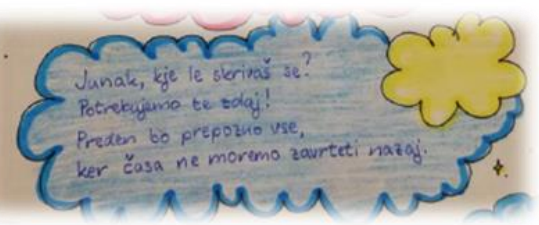 Junak, kje le skrivaš se?
Potrebujemo te zdaj!
Preden bo prepozno vse,
ker časa ne moremo zavrteti nazaj.